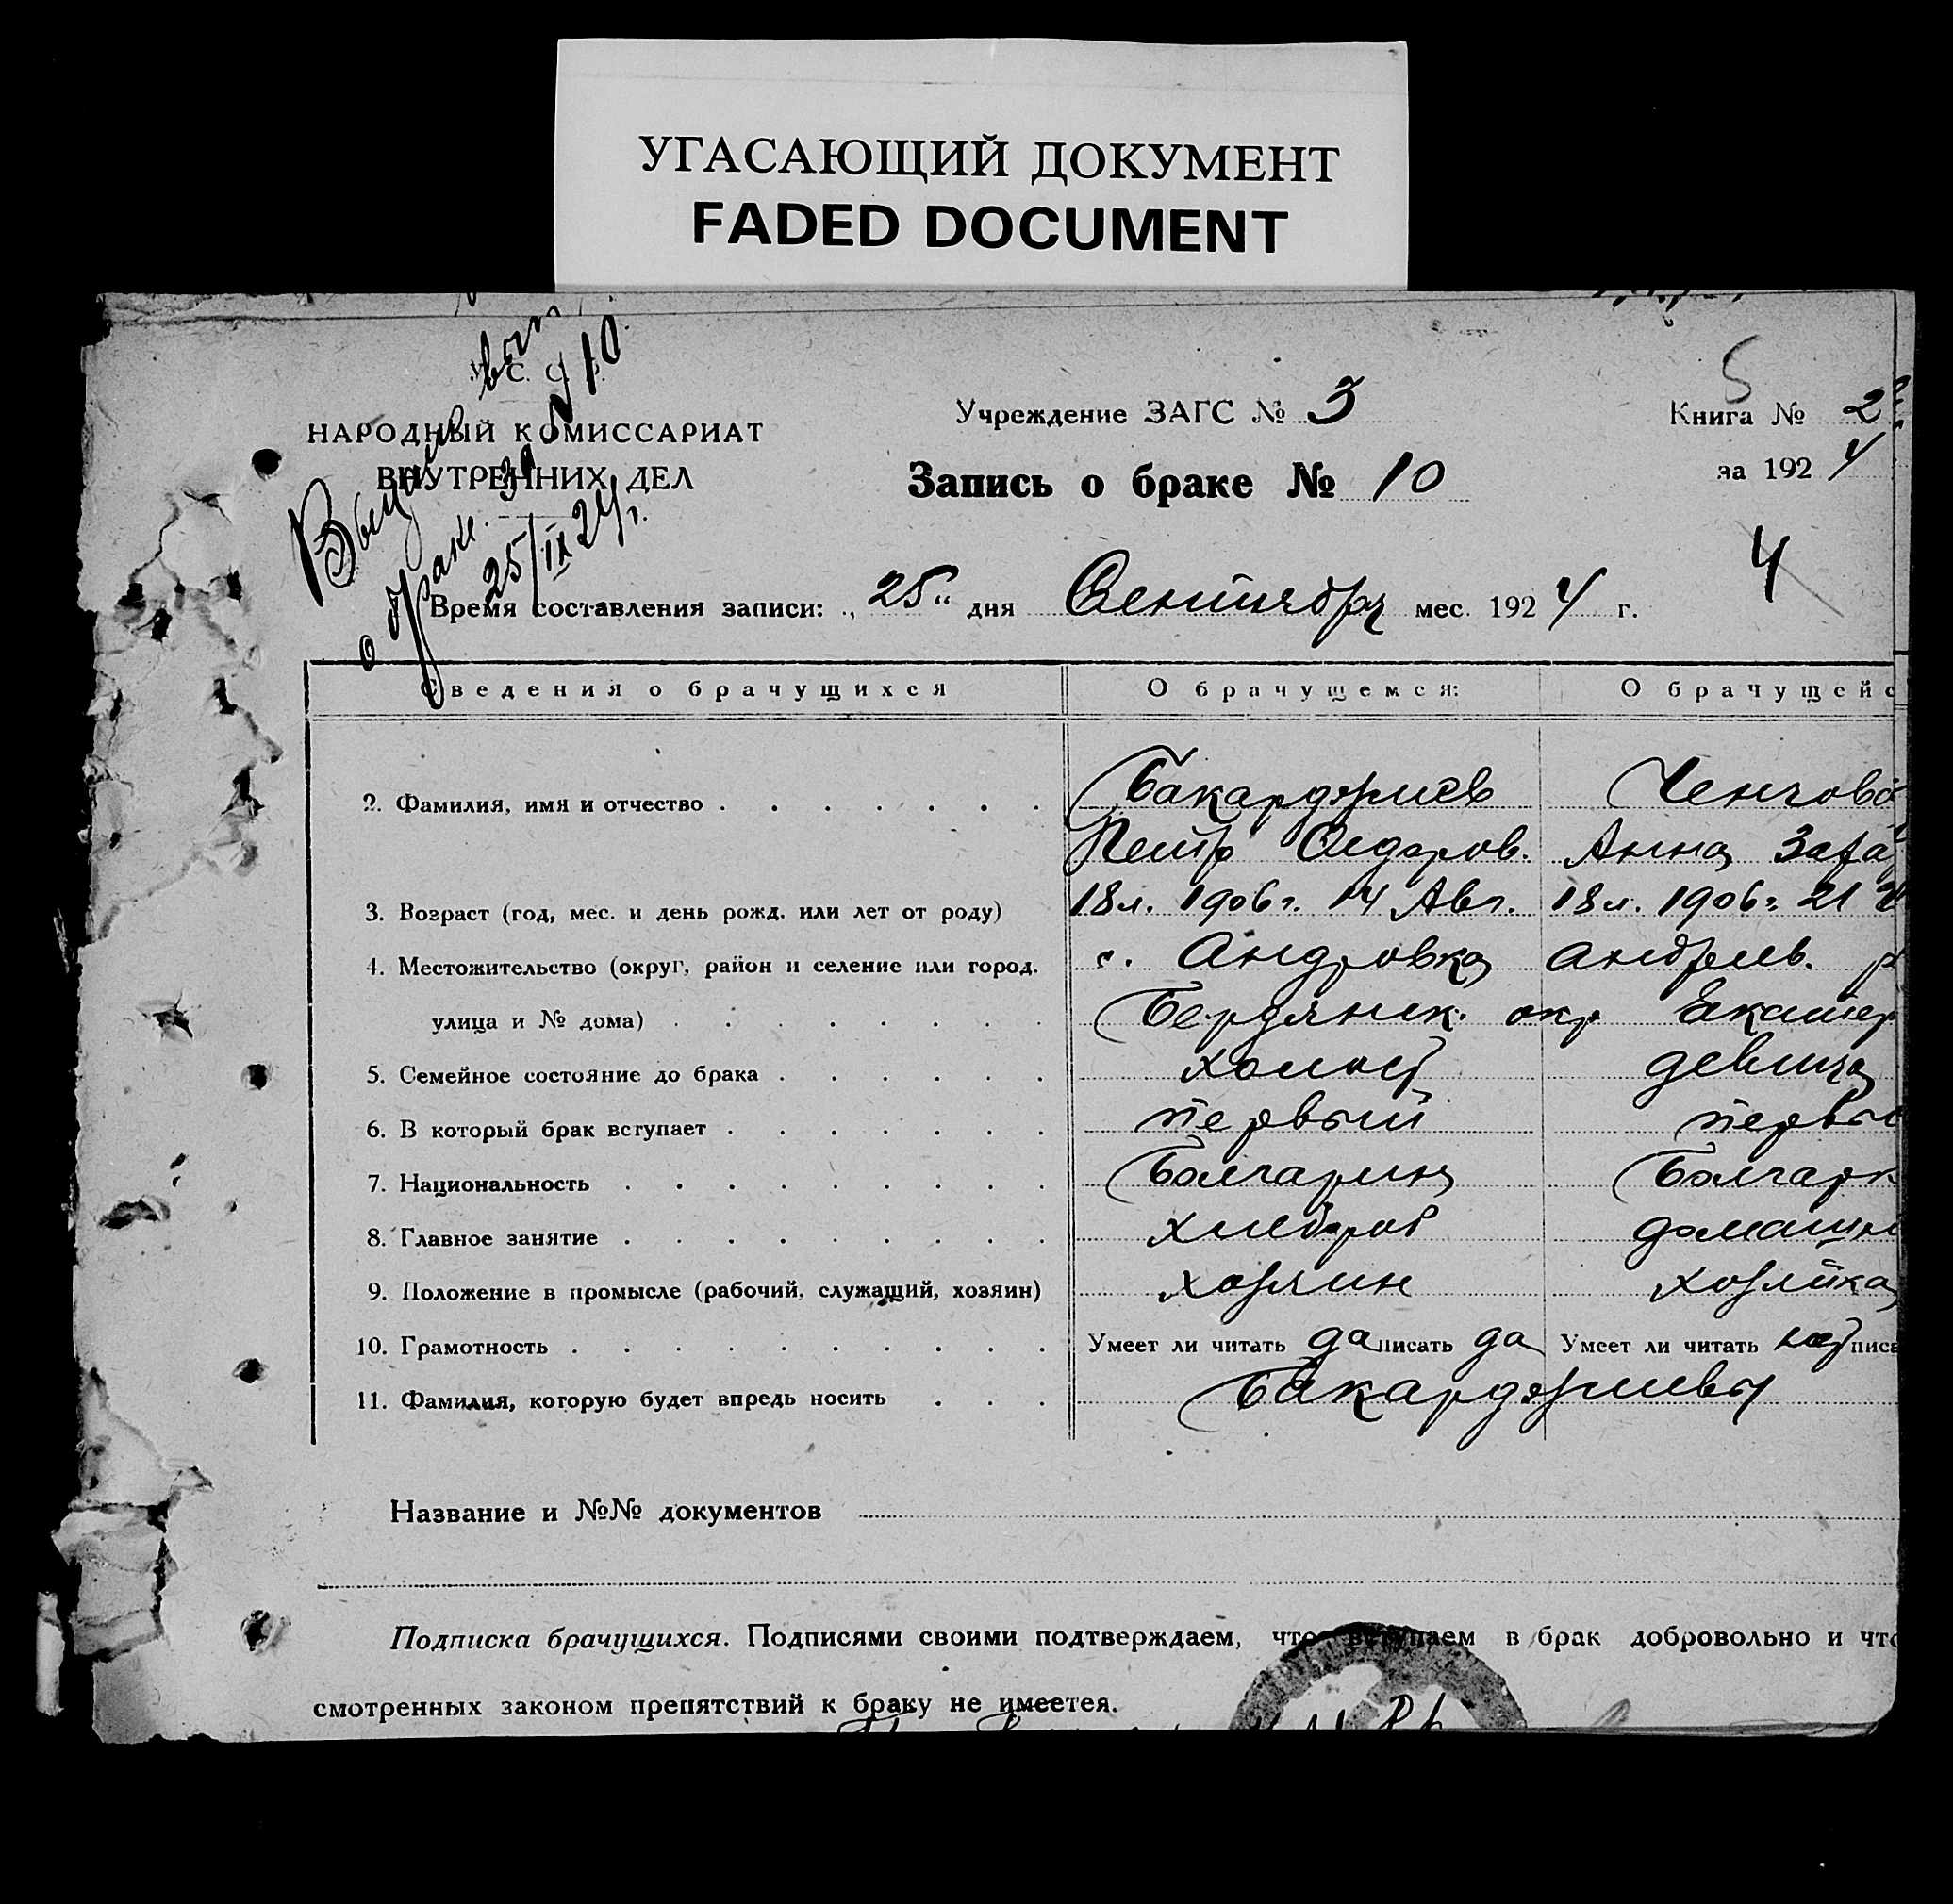 УГАСАЮЩИЙ ДОКУМЕНТ
FADED DOCUMENT
НАРОДНЫЙ КОМИССАРИАТ
ВНУТРЕННИХ ДЕЛ
о браке. За № 10
25/IX 24 г.
Учреждение ЗАГС № 3
Запись о браке № 10
5
Книга № 2
за 1924
4
Время составления записи: „25“ дня Сентября мес. 1924 г.
Сведения о брачущихся О брачущемся: О брачущейс
2. Фамилия, имя и отчество Бакарджиев Ченгова
Петр Сидоров. Анна
3. Возраст (год, мес. и день рожд. или лет от роду) 18 л. 1906 г. 14 Авг. 18 л. 1906 г. 21
4. Местожительство (округ, район и селение или город. с. Андровка Андрев. р
улица и № дома) Бердянск. окр Екатер
5. Семейное состояние до брака холост девица
6. В который брак вступает первый первы
7. Национальность Болгарин Болгарк
8. Главное занятие хлебороб домашн
9. Положение в промысле (рабочий, служащий, хозяин) хозяин хозяйка
10. Грамотность Умеет ли читать да писать да Умеет ли читать нет писа
11. Фамилия, которую будет впредь носить Бакарджиевы
Название и №№ документов
Подписка брачущихся. Подписями своими подтверждаем, что вступаем в брак добровольно и что
смотренных законом препятствий к браку не имеется.